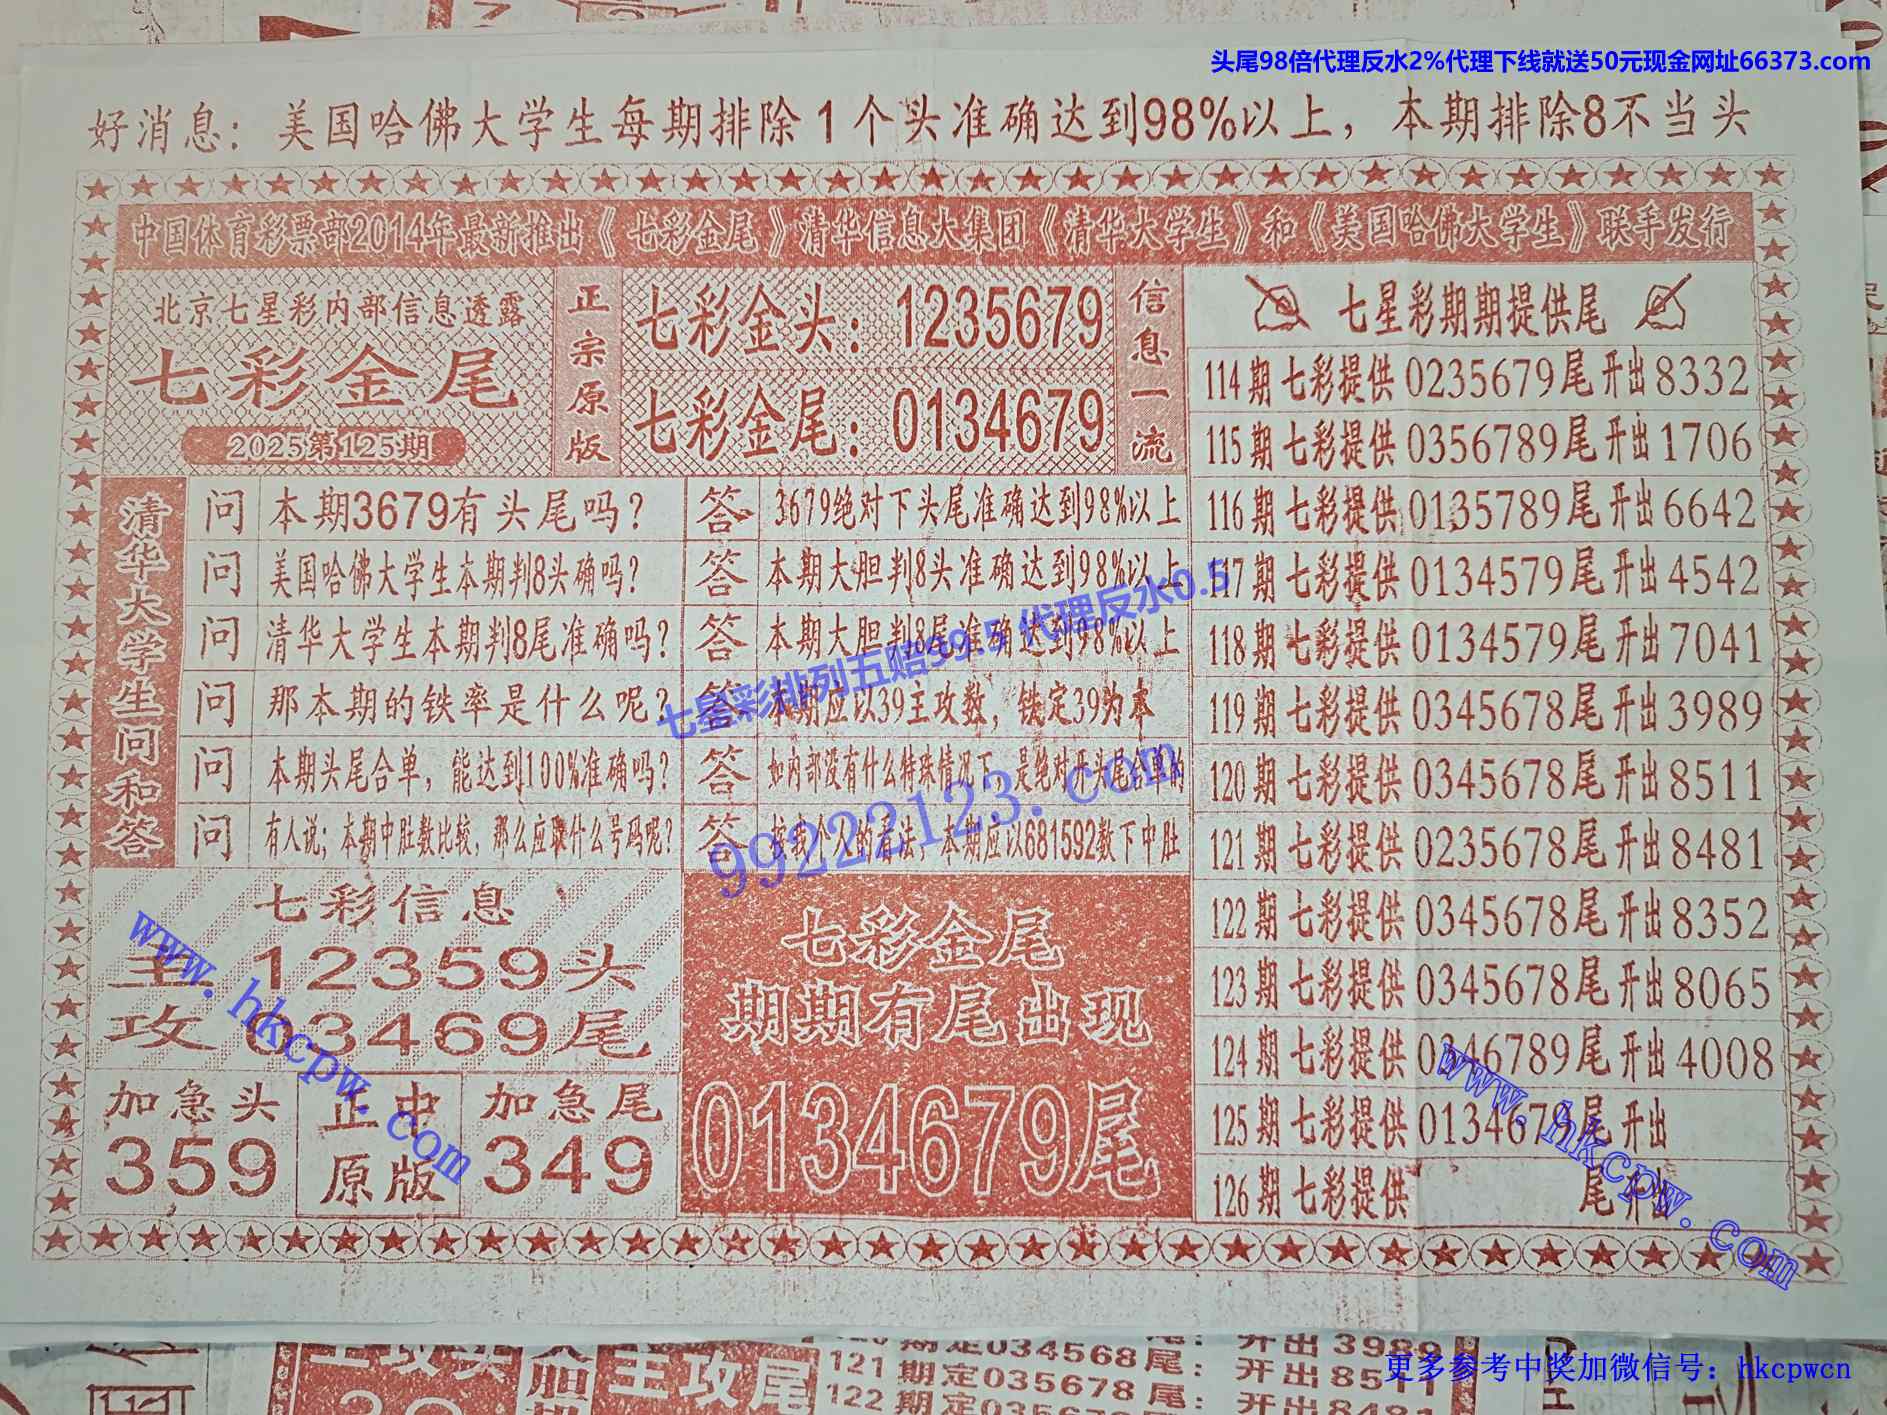 头尾98倍代理反水2%代理下线就送50元现金网址66373.com
好消息：美国哈佛大学生每期排除1个头准确达到98%以上，本期排除8不当头
中国体育彩票部2014年最新推出《七彩金尾》清华信息大集团《清华大学生》和《美国哈佛大学生》联手发行
北京七星彩内部信息透露
七彩金尾
2025第125期
正宗原版
七彩金头：1235679
七彩金尾：0134679
信息一流
清华大学生问和答
问 本期3679有头尾吗？ 答 3679绝对下头尾准确达到98%以上
问 美国哈佛大学生本期判8头确吗？ 答 本期大胆判8头准确达到98%以上
问 清华大学生本期判8尾准确吗？ 答 本期大胆判8尾准确达到98%以上
问 那本期的铁率是什么呢？ 答 本期应以39主攻数，铁定39为本
问 本期头尾合单，能达到100%准确吗？ 答 如内部没有什么特殊情况下，是绝对开头尾合单的
问 有人说；本期中肚数比较，那么应取什么号码呢？ 答 按我个人的看法，本期应以681592数下中肚
七星彩排列五赔99.5 代理反水0.5
99222123.com
七彩信息
主攻 12359头
03469尾
加急头
359
正中原版
加急尾
349
七彩金尾
期期有尾出现
0134679尾
七星彩期期提供尾
114期 七彩提供 0235679尾 开出 8332
115期 七彩提供 0356789尾 开出 1706
116期 七彩提供 0135789尾 开出 6642
117期 七彩提供 0134579尾 开出 4542
118期 七彩提供 0134579尾 开出 7041
119期 七彩提供 0345678尾 开出 3989
120期 七彩提供 0345678尾 开出 8511
121期 七彩提供 0235678尾 开出 8481
122期 七彩提供 0345678尾 开出 8352
123期 七彩提供 0345678尾 开出 8065
124期 七彩提供 0346789尾 开出 4008
125期 七彩提供 0134679尾 开出
126期 七彩提供 尾 开出
www.hkcpw.com
www.hkcpw.com
主攻尾
期定034568尾：开出3989
121期定035678尾：开出8511
122期定 尾：开出8481
更多参考中奖加微信号：hkcpwcn